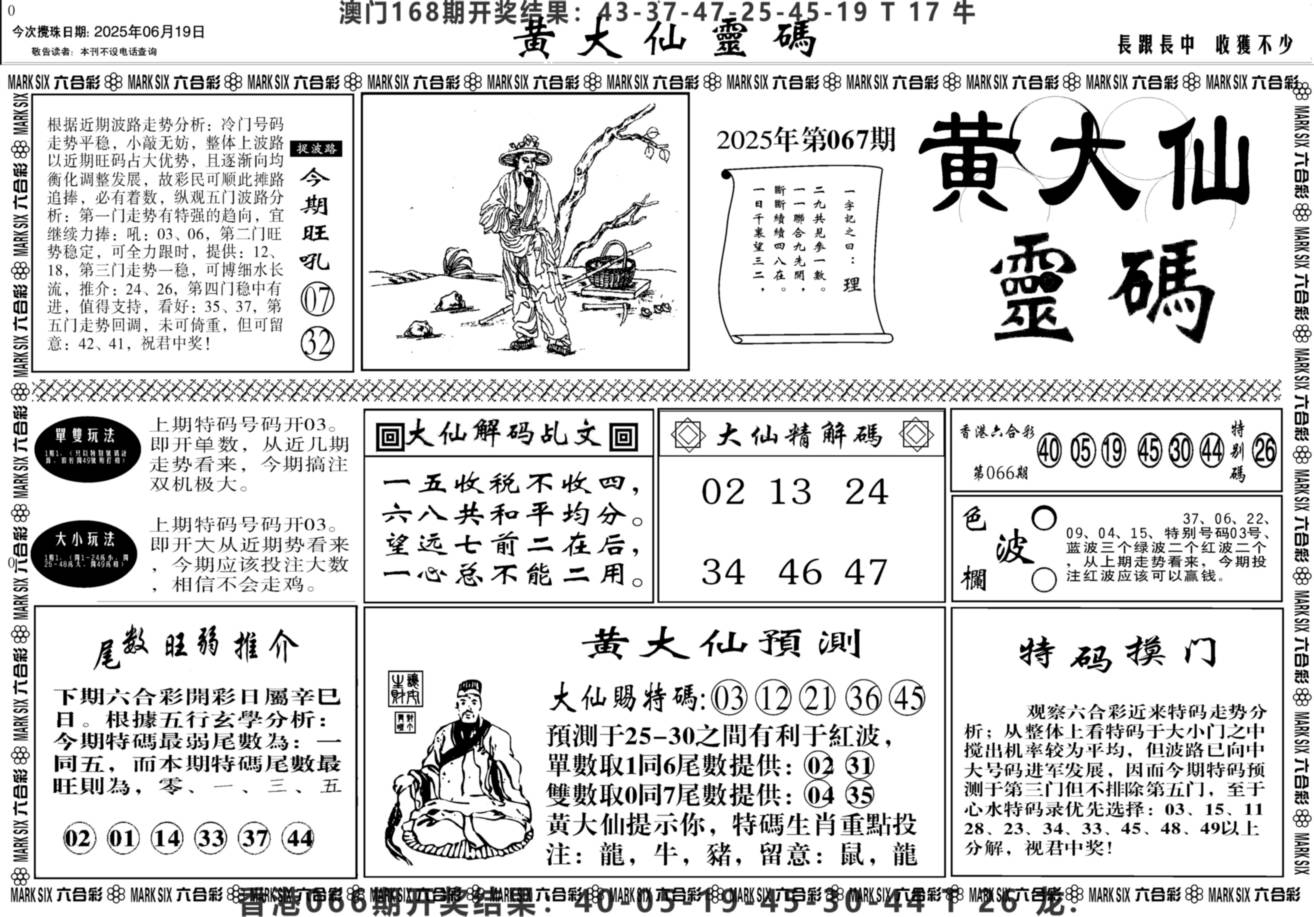 0
澳门168期开奖结果：43-37-47-25-45-19 T 17 牛
今次攪珠日期: 2025年06月19日
敬告读者：本刊不设电话查询
黄大仙靈碼
長跟長中 收獲不少
MARK SIX 六合彩 MARK SIX 六合彩 MARK SIX 六合彩 MARK SIX 六合彩 MARK SIX 六合彩 MARK SIX 六合彩 MARK SIX 六合彩 MARK SIX 六合彩 MARK SIX 六合彩 MARK SIX 六合彩 MARK SIX 六合彩
根据近期波路走势分析：冷门号码
走势平稳，小敲无妨，整体上波路
以近期旺码占大优势，且逐渐向均
衡化调整发展，故彩民可顺此摊路
追捧，必有着数，纵观五门波路分
析：第一门走势有特强的趋向，宜
继续力捧：吼：03、06，第二门旺
势稳定，可全力跟时，提供：12、
18，第三门走势一稳，可博细水长
流，推介：24、26，第四门稳中有
进，值得支持，看好：35、37，第
五门走势回调，未可倚重，但可留
意：42、41，祝君中奖！
捉波路
今期旺吼
07
32
2025年第067期
一字記之曰：理
二九共見參一數。
一一聯合九先開，
斷斷續續四八在。
一日千裏望三二，
黄大仙
靈碼
單雙玩法
上期特码号码开03。
即开单数，从近几期
走势看来，今期搞注
双机极大。
大小玩法
上期特码号码开03。
即开大从近期势看来
，今期应该投注大数
，相信不会走鸡。
大仙解码乩文
一五收税不收四，
六八共和平均分。
望远七前二在后，
一心总不能二用。
大仙精解碼
02 13 24
34 46 47
香港六合彩
第066期
40 05 19 45 30 44
特别碼
26
色波欄
37、06、22、
09、04、15、特别号码03号、
蓝波三个绿波二个红波二个
，从上期走势看来，今期投
注红波应该可以赢钱。
尾数旺弱推介
下期六合彩開彩日屬辛巳
日。根據五行玄學分析：
今期特碼最弱尾數為：一
同五，而本期特碼尾數最
旺則為，零、一、三、五
02 01 14 33 37 44
黄大仙預測
大仙賜特碼: 03 12 21 36 45
預測于25-30之間有利于紅波，
單數取1同6尾數提供：02 31
雙數取0同7尾數提供：04 35
黄大仙提示你，特碼生肖重點投
注：龍，牛，豬，留意：鼠，龍
特码摸门
观察六合彩近来特码走势分
析；从整体上看特码于大小门之中
搅出机率较为平均，但波路已向中
大号码进军发展，因而今期特码预
测于第三门但不排除第五门，至于
心水特码录优先选择：03、15、11
28、23、34、33、45、48、49以上
分解，视君中奖！
MARK SIX 六合彩 MARK SIX 六合彩 MARK SIX 六合彩 MARK SIX 六合彩 MARK SIX 六合彩 MARK SIX 六合彩 MARK SIX 六合彩 MARK SIX 六合彩 MARK SIX 六合彩 MARK SIX 六合彩 MARK SIX 六合彩
香港066期开奖结果：40-05-19-45-30-44 T 26 龙